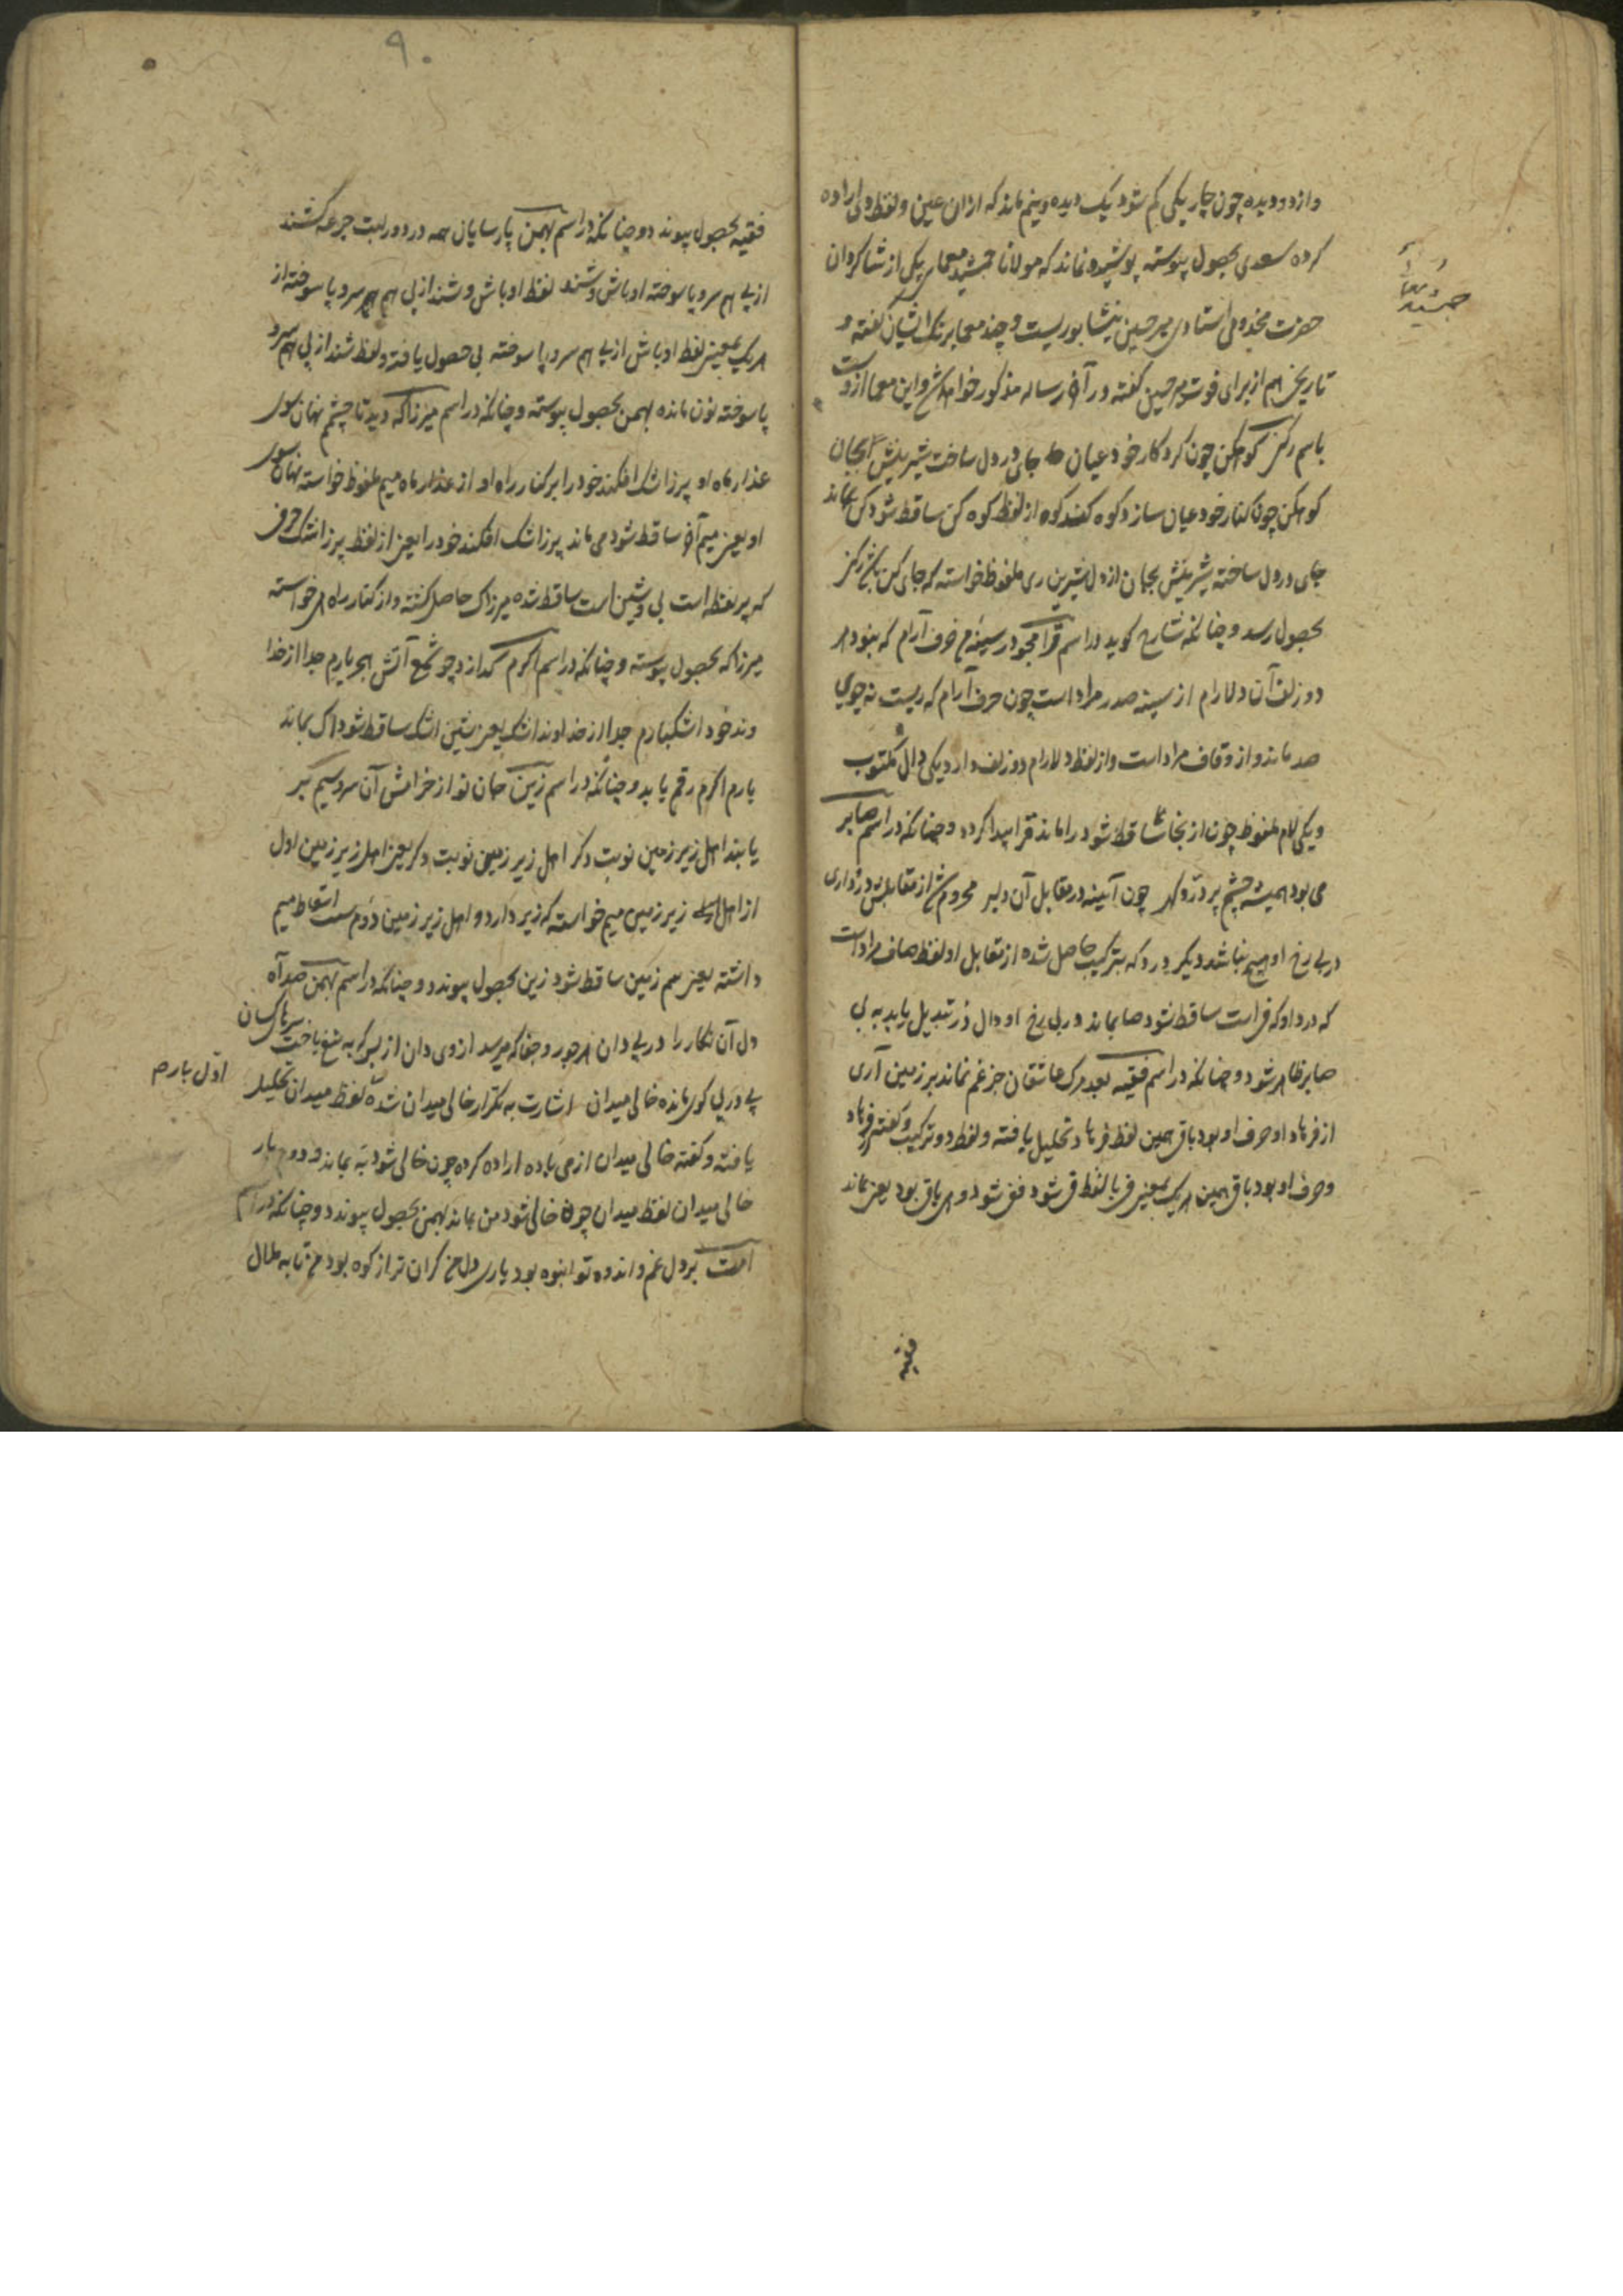 وازدو دیده چون چار یکی کم شود یک دیده ونیم ماند که ازان عین ولفظ ولی اراده
کرده سعدی بحصول پیوسته پوشیده نماند که مولانا جمشید معمایی یکی از شاکردان
حضرت مخدومی استادی میر حسین نیشابوریست وچند معما برنک ایشان گفته و
تاریخ هم از برای فوت میر حسین گفته در آخر رساله مذکور خواهد شد واین معما ازوست
باسم رکن کوهکن چون کرد کار خود عیان جای در دل ساخت شیرینش بجان
کوهکن چون کنار خود عیان سازد کوه کند کوه از لفظ کوه کن ساقط شود کن بماند
جای در دل ساخته شیرینش بجان از دل شیرین ری ملفوظ خواسته که جای کن باشد رکن
بحصول رسد وچنانکه شارح کوید در اسم قرا مجو در سینه‌ام حرف آرام که بنود هر
دو زلف آن دلارام از سینه صدر مراد است چون حرف آرام که ریست نه جوی
صد ماند واز و قاف مراد است واز لفظ دلارام دو زلف دارد یکی دال مکتوب
ویکی لام ملفوظ چون از بنجا ساقط شود راماند قرا پیدا کردد وچنانکه در اسم صابر
می بود همیشه چشم پر درد و چون آیینه در مقابل آن دلبر محروم شد از مقابلش در زاری
در بی رخ او هیچ نباشد دیکر درد که بترکیب حاصل شده از مقابل او لفظ صاف مراد است
که درد او که فراست ساقط شود صا بماند و در بی رخ او دال در تبدیل یابد به بی
صابر ظاهر شود وچنانکه در اسم فقیه بعد مرک عاشقان جز غم نماند بر زمین آری
از فرهاد او حرف او بود باقی همین لفظ فرهاد تحلیل یافته ولفظ دو ترکیب وکفته فرهاد
وحرف او بود باقی همین هر یک بمعنی فر با لفظ ق شود فق شود و هی باقی بود یعنی بماند
فقیه
جمشید
۹۰
فقیه بحصول پیوندد وچنانکه در اسم بهمن پارسایان همه در دور لبت جرعه کشند
از پی هم سر و پا سوخته اوباش وشند لفظ اوباش وشند از پی هم سر و پا سوخته از
هر یک بمعنی لفظ اوباش از پی هم سر و پا سوخته بی حصول یافته ولفظ شند از پی هم سر و
پا سوخته نون مانده بهمن بحصول پیوسته وچنانکه در اسم میرزاکه دید تا چشم نهان سوی
عذار ماه او پر ز اشک افکند خود را بر کنار راه او از عذار ماه میم ملفوظ خواسته نهان سوی
او یعنی میم آخر ساقط شود می ماند پر ز اشک افکند خود را یعنی از لفظ پر ز اشک حرفی
که پر نقطه است بی و شین است ساقط شده میرزاک حاصل کشته واز کنار راه هی خواسته
میرزاکه بحصول پیوسته وچنانکه در اسم اکرم کدازد چو شمع آتش هجر یارم جدا از خدا
وند خود اشکبارم جدا از خداوند اشک یعنی شین اشک ساقط شود اک بماند
یارم اکرم رقم یابد وچنانکه در اسم زین جان نو از خرامش آن سرو سیم بر
یابند اهل زیر زمین نوبت دکر اهل زیر زمین نوبت دکر یعنی اهل زیر زمین اول
از اهل زیر زمین میم خواسته که زیر دارد واهل زیر زمین دوم سبب اسقاط میم
داشته یعنی میم زمین ساقط شود زین بحصول پیوندد وچنانکه در اسم بهمن صد آه
دل آن نکار را در پی دان هر جور وجفا که میرسد از وی دان از بس که به تیغ باخت سرها کسان
پی در پی کوی مانده خالی میدان اشارت به تکرار خالی میدان شده لفظ میدان تحلیل
اول باره
یافته وکفته خالی میدان از می باده اراده کرده چون خالی شود به بماند و دوم بار
خالی میدان لفظ میدان چون خالی شود من بماند بهمن بحصول پیوندد وچنانکه در اسم
امت بر دل غم و اندوه تو انبوه بود یاری دل من کران تر از کوه بود من تا به ملال